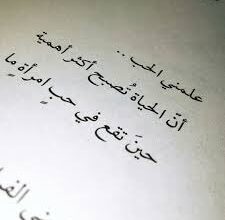 علمني الحب ..
أنّ الحياة تُصبح أكثر أهمية
حينَ تقع في حبِ امرأةٍ ما